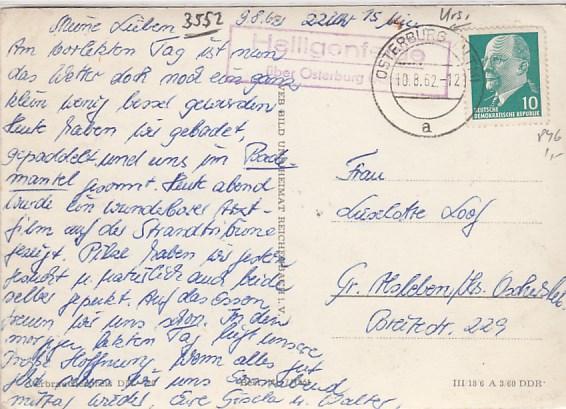 Meine Lieben! 3552 9.8.62 22 Uhr 15 Min Urs.
Am vorletzten Tag ist nun
das Wetter doch noch ein ganz
klein wenig besser geworden.
Heute haben wir gebadet,
gepaddelt und uns im Bade-
mantel gesonnt. Heute abend
wurde ein wunderbarer Arzt-
film auf der Strandtribüne
gezeigt. Pilze haben wir gestern
gesucht u. natürlich auch beide
selber geputzt. Auf das Essen
freuen wir uns schon. In den
morgigen letzten Tag liegt unsere
große Hoffnung. Wenn alles gut
geht sehen wir uns Sonnabend
mittag wieder. Eure Gisela u. Walter.
Heiligenfelde
über Osterburg
OSTERBURG
10.8.62.-12
a
10
DEUTSCHE
DEMOKRATISCHE REPUBLIK
846
1,-
Frau
Lieselotte Loof
Gr. Alsleben/Krs. Oschersleb.
Breitestr. 229
VEB BILD UND HEIMAT REICHENBACH I. V.
III 18 6 A 3/60 DDR